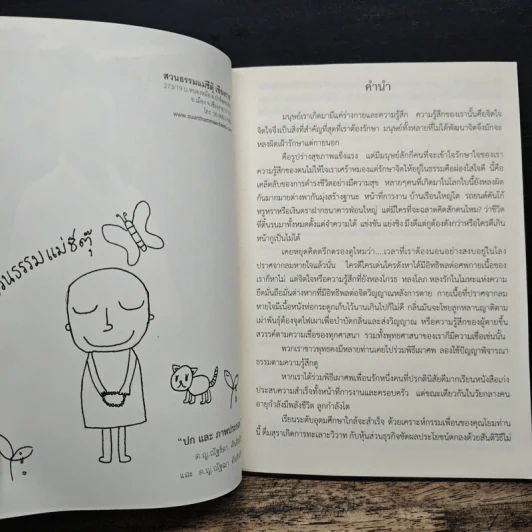 สวนธรรมแม่ชีตุ๊
สวนธรรมแม่ชีตุ๊
"ปก และ ภาพประกอบ
คำนำ
มนุษย์เราเกิดมามีแค่ร่างกายและความรู้สึก ความรู้สึกของเรานั้นคือจิตใจ
จิตใจจึงเป็นสิ่งที่สำคัญที่สุดที่เราต้องรักษา มนุษย์ทั้งหลายที่ไม่ได้พัฒนาจิตจึงมักจะ
หลงผิดเฝ้ารักษาแต่กายนอก
คือรูปร่างสุขภาพแข็งแรง แต่มีมนุษย์สักกี่คนที่จะเข้าใจรักษาใจของเรา
ความรู้สึกของตนไม่ให้ใจเราเศร้าหมองแต่รักษาใจให้อยู่ในธรรมคือผ่องใสใจดี นี้คือ
เคล็ดลับของการดำรงชีวิตอย่างมีความสุข หลายๆคนที่เกิดมาในโลกใบนี้ยังหลงผิด
กันมากมายต่างพากันมุ่งสร้างฐานะ หน้าที่การงาน บ้านเรือนใหญ่โต รถยนต์คันโก้
หรูหราหรือเงินตราฝากธนาคารพ่อนใหญ่ แต่มีใครที่จะฉลาดคิดสักคนไหม? ว่าชีวิต
ที่ดิ้นรนมาทั้งหมดตั้งแต่จำความได้ แข่งขัน แย่งชิง มีจดีแต่กูต้องดังกว่าหรือใครดีเกิน
หน้ากูเป็นไม่ได้
เคยหยุดคิดตรึกตรองดูไหมว่า....เวลาที่เราต้องนอนอย่างสงบอยู่ในโลง
ปราศจากลมหายใจแล้วนั้น ใครดีใครเด่นใครดังหาได้มีอิทธิพลต่อศพกายเนื้อของ
เราก็หาไม่ แต่จิตใจหรือความรู้สึกที่ยังหลงโกรธ หลงโลภ หลงรักในโมหะแห่งความ
ยึดมั่นถือมั่นต่างหากที่มีอิทธิพลต่อจิตวิญญาณหลังการตาย กายเนื้อที่ปราศจากลม
หายใจมีเนื้อหนังห่อกระดูกเก็บไว้นานเกินไปก็ไม่ได้ กลิ่นมันจะโชยลูกหลานญาติตาม
เผ่าพันธุ์ต้องจุดไฟเผาเพื่อบำบัดกลิ่นและส่งวิญญาณ หรือความรู้สึกของผู้ตายขึ้น
สวรรค์ตามความเชื่อของทุกศาสนา รวมทั้งพุทธศาสนาของเราก็มีความเชื่อเช่นนั้น
พวกเราชาวพุทธคงมีหลายท่านเคยไปร่วมพิธีเผาศพ ลองใช้ปัญญาพิจารณา
ธรรมตามความรู้สึกดู
หากเราได้ร่วมพิธีเผาศพเพื่อนรักหนึ่งคนที่ปรกตินิสัยดีมากเรียนหนังสือเก่ง
ประสบความสำเร็จทั้งหน้าที่การงานและครอบครัว แต่ขณะเดียวกันในวัยกลางคน
อายุกำลังมีพลังชีวิต ลูกกำลังโต
เรียนระดับอุดมศึกษาใกล้จะสำเร็จ ด้วยเคราะห์กรรมเพื่อนของคุณโยมท่าน
นี้ ดื่มสุราเกิดการทะเลาะวิวาท กับหุ้นส่วนธุรกิจขัดผลประโยชน์ตกลงด้วยสันติวิธีไม่